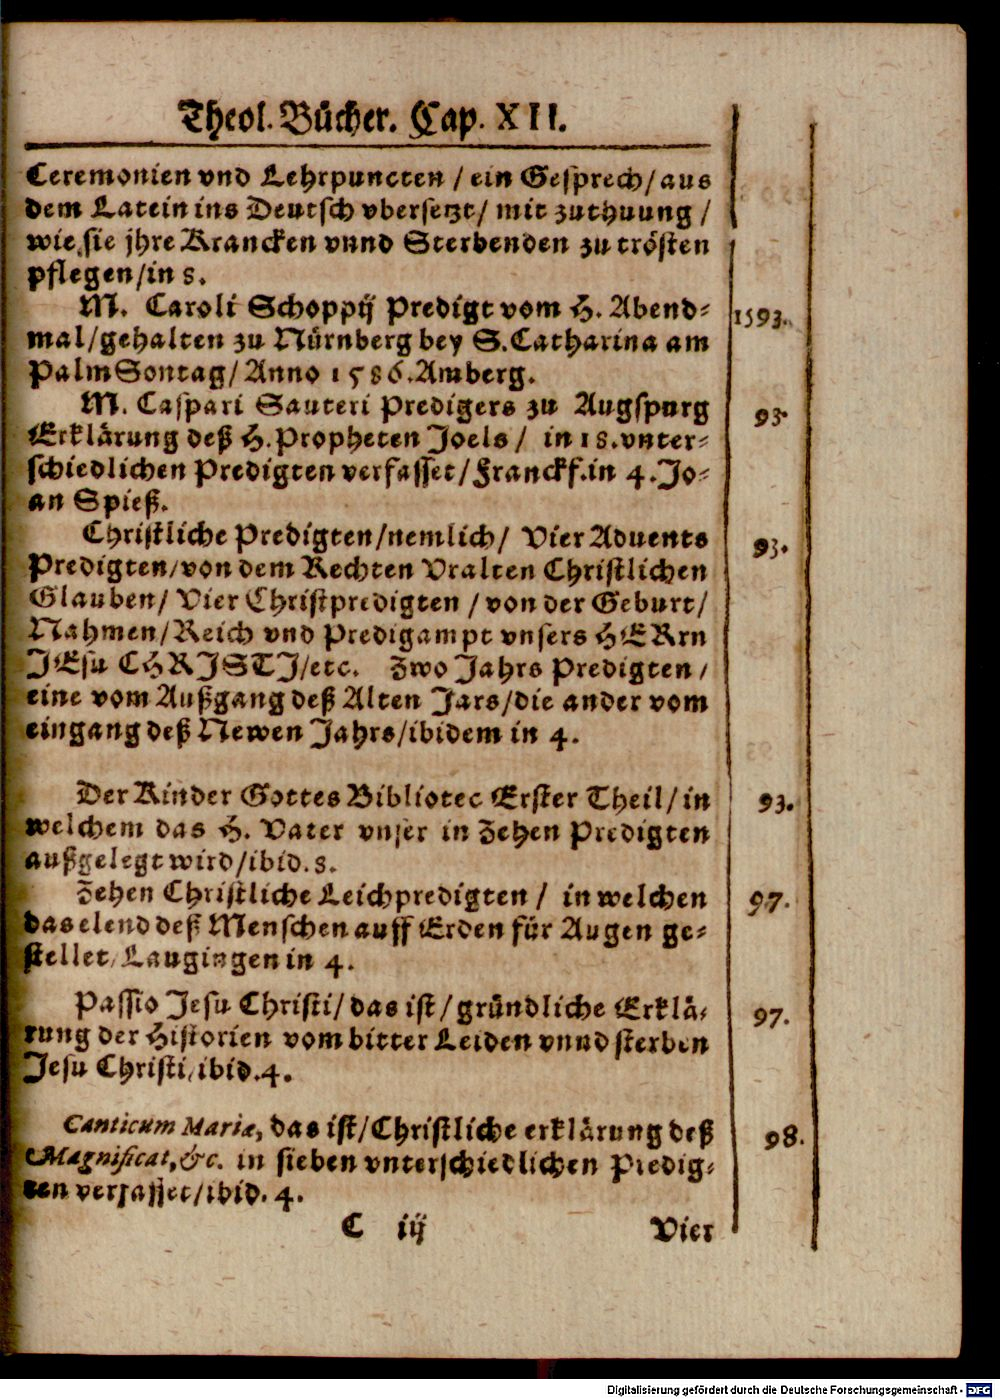 Theol. Bücher. Cap. XII.
Ceremonien vnd Lehrpuncten / ein Gesprech / aus
dem Latein ins Deutsch vbersetzt / mit zuthuung /
wie sie jhre Krancken vnnd Sterbenden zu trösten
pflegen / in 8.
M. Caroli Schoppij Predigt vom H. Abend- 1593.
mal / gehalten zu Nürnberg bey S. Catharina am
PalmSontag / Anno 1586. Amberg.
M. Caspari Sauteri Predigers zu Augspurg 93.
Erklärung deß H. Propheten Joels / in 18. vnter-
schiedlichen Predigten verfasset / Franckf. in 4. Jo-
an Spieß.
Christliche Predigten / nemlich / Vier Aduents 93.
Predigten / von dem Rechten Vralten Christlichen
Glauben / Vier Christpredigten / von der Geburt /
Nahmen / Reich vnd Predigampt vnsers HERrn
JEsu CHRISTI / etc. Zwo Jahrs Predigten /
eine vom Außgang deß Alten Jars / die ander vom
eingang deß Newen Jahrs / ibidem in 4.
Der Kinder Gottes Bibliotec Erster Theil / in 93.
welchem das H. Vater vnser in Zehen Predigten
außgelegt wird / ibid. 8.
Zehen Christliche Leichpredigten / in welchen 97.
das elend deß Menschen auff Erden für Augen ge-
stellet / Laugingen in 4.
Passio Jesu Christi / das ist / gründliche Erklä- 97.
rung der Historien vom bitter Leiden vnnd sterben
Jesu Christi, ibid. 4.
Canticum Mariæ, das ist / Christliche erklärung deß 98.
Magnificat, &c. in sieben vnterschiedlichen Predig-
ten verfasset / ibid. 4.
C iij Vier
Digitalisierung gefördert durch die Deutsche Forschungsgemeinschaft - DFG